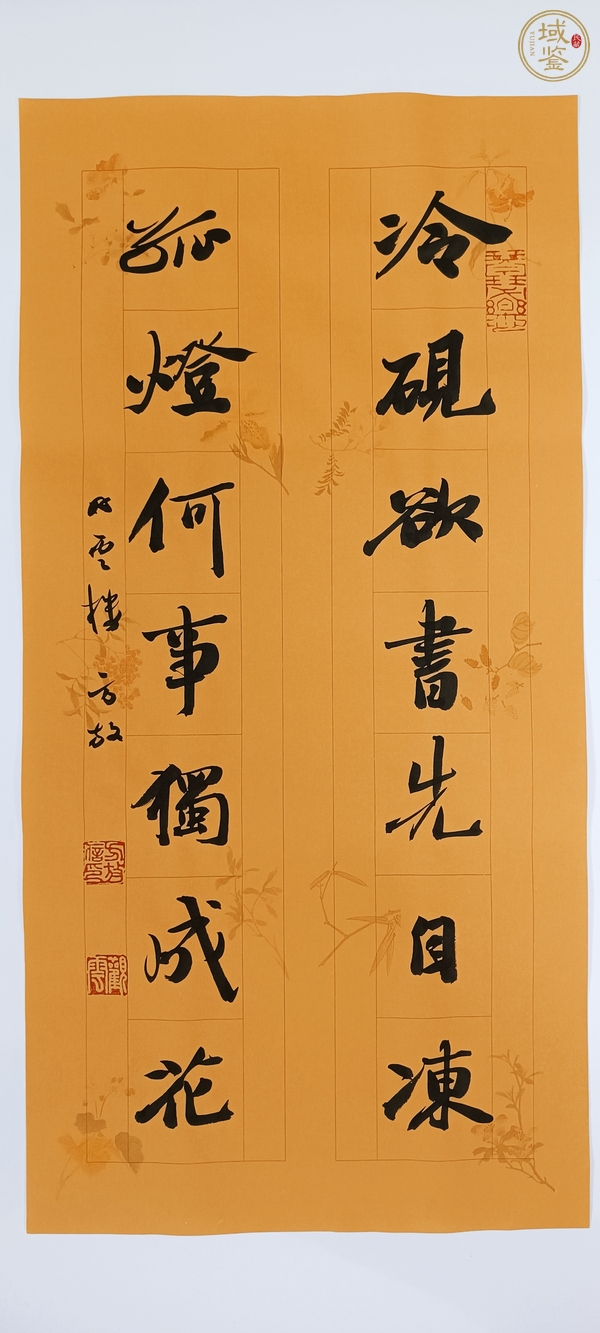 冷硯欲書先自凍
孤燈何事獨成花
雲樓方放
觀雲
域鉴
YUJIAN